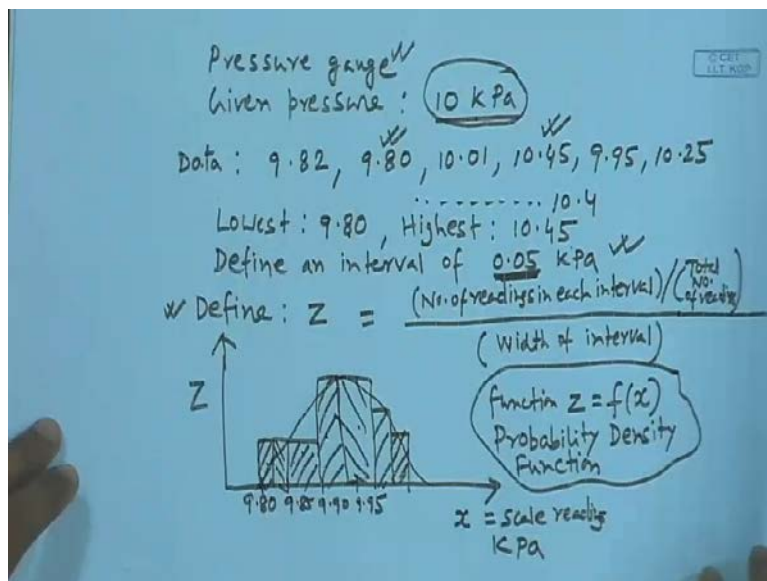 Pressure gauge
© CET
I.I.T. KGP
Given pressure : 10 kPa
Data : 9.82, 9.80, 10.01, 10.45, 9.95, 10.25
.......... 10.4
Lowest : 9.80, Highest : 10.45
Define an interval of 0.05 kPa
Define : Z = (No. of readings in each interval)/(Total No. of reading)
(Width of interval)
Z
function z = f(x)
Probability Density
Function
9.80 9.85 9.90 9.95
x = scale reading
KPa